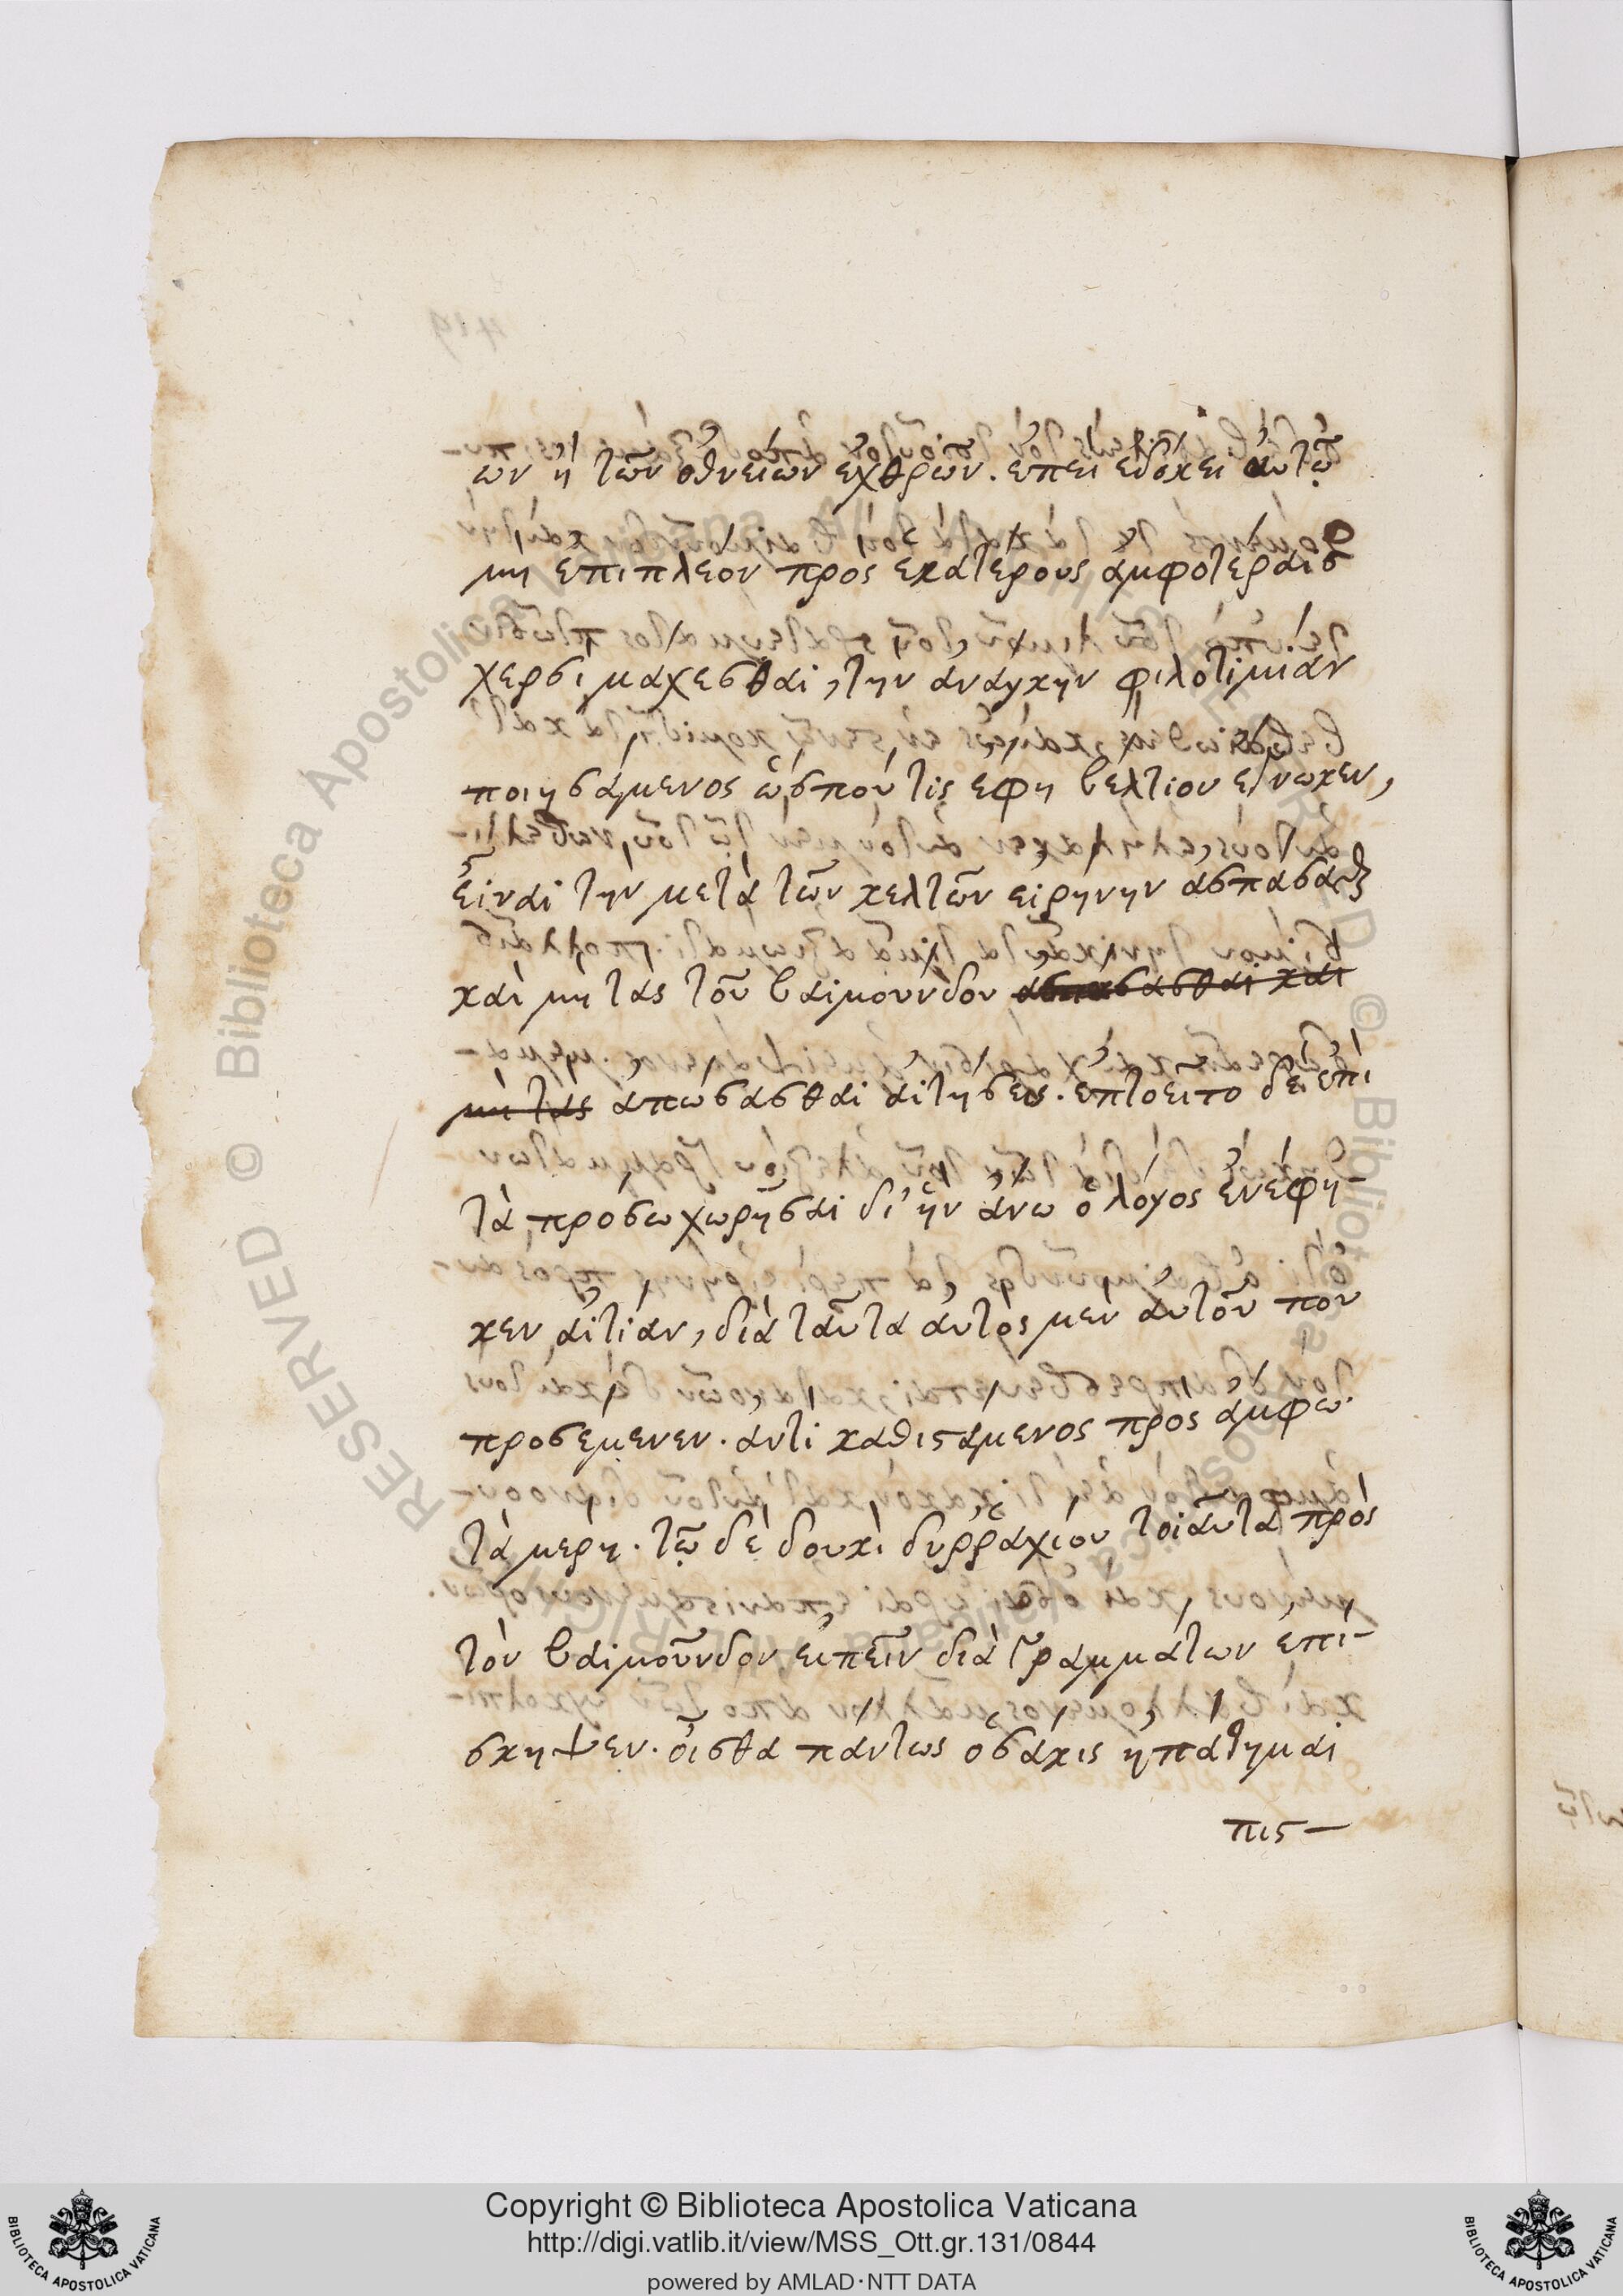 ων ἢ τῶν ὀθνείων ἐχθρῶν. ἐπεὶ ἐδόκει αὐτῷ
μὴ ἐπιπλέον πρὸς ἑκατέρους ἀμφοτέραις
χερσὶ μάχεσθαι, τὴν ἀνάγκην φιλοτιμίαν
ποιησάμενος ὥς που τὶς ἔφη βέλτιον ἔγνωκεν,
εἶναι τὴν μετὰ τῶν κελτῶν εἰρήνην ἀσπάσασθαι
καὶ μὴ τὰς τοῦ βαιμούνδου ἀσπάσασθαι καὶ
μὴ τὰς ἀπώσασθαι αἰτήσεις. ἐπτοεῖτο δὲ ἐπὶ
τὰ πρόσω χωρῆσαι δι' ἣν ἄνω ὁ λόγος ἐνέφη-
κεν αἰτίαν, διὰ ταῦτα αὐτὸς μὲν αὐτοῦ που
προσέμενεν. ἀντικαθιστάμενος πρὸς ἄμφω
τὰ μέρη. τῷ δὲ δουκὶ δυῤῥαχίου τοιαῦτα πρὸς
τὸν βαιμοῦνδον εἰπεῖν διὰ γραμμάτων ἐπέ-
σκηψεν. οἶσθα πάντως ὁσάκις ἠπάτημαι
πισ-
Copyright © Biblioteca Apostolica Vaticana
http://digi.vatlib.it/view/MSS_Ott.gr.131/0844
powered by AMLAD·NTT DATA
BIBLIOTECA APOSTOLICA VATICANA
BIBLIOTECA APOSTOLICA VATICANA